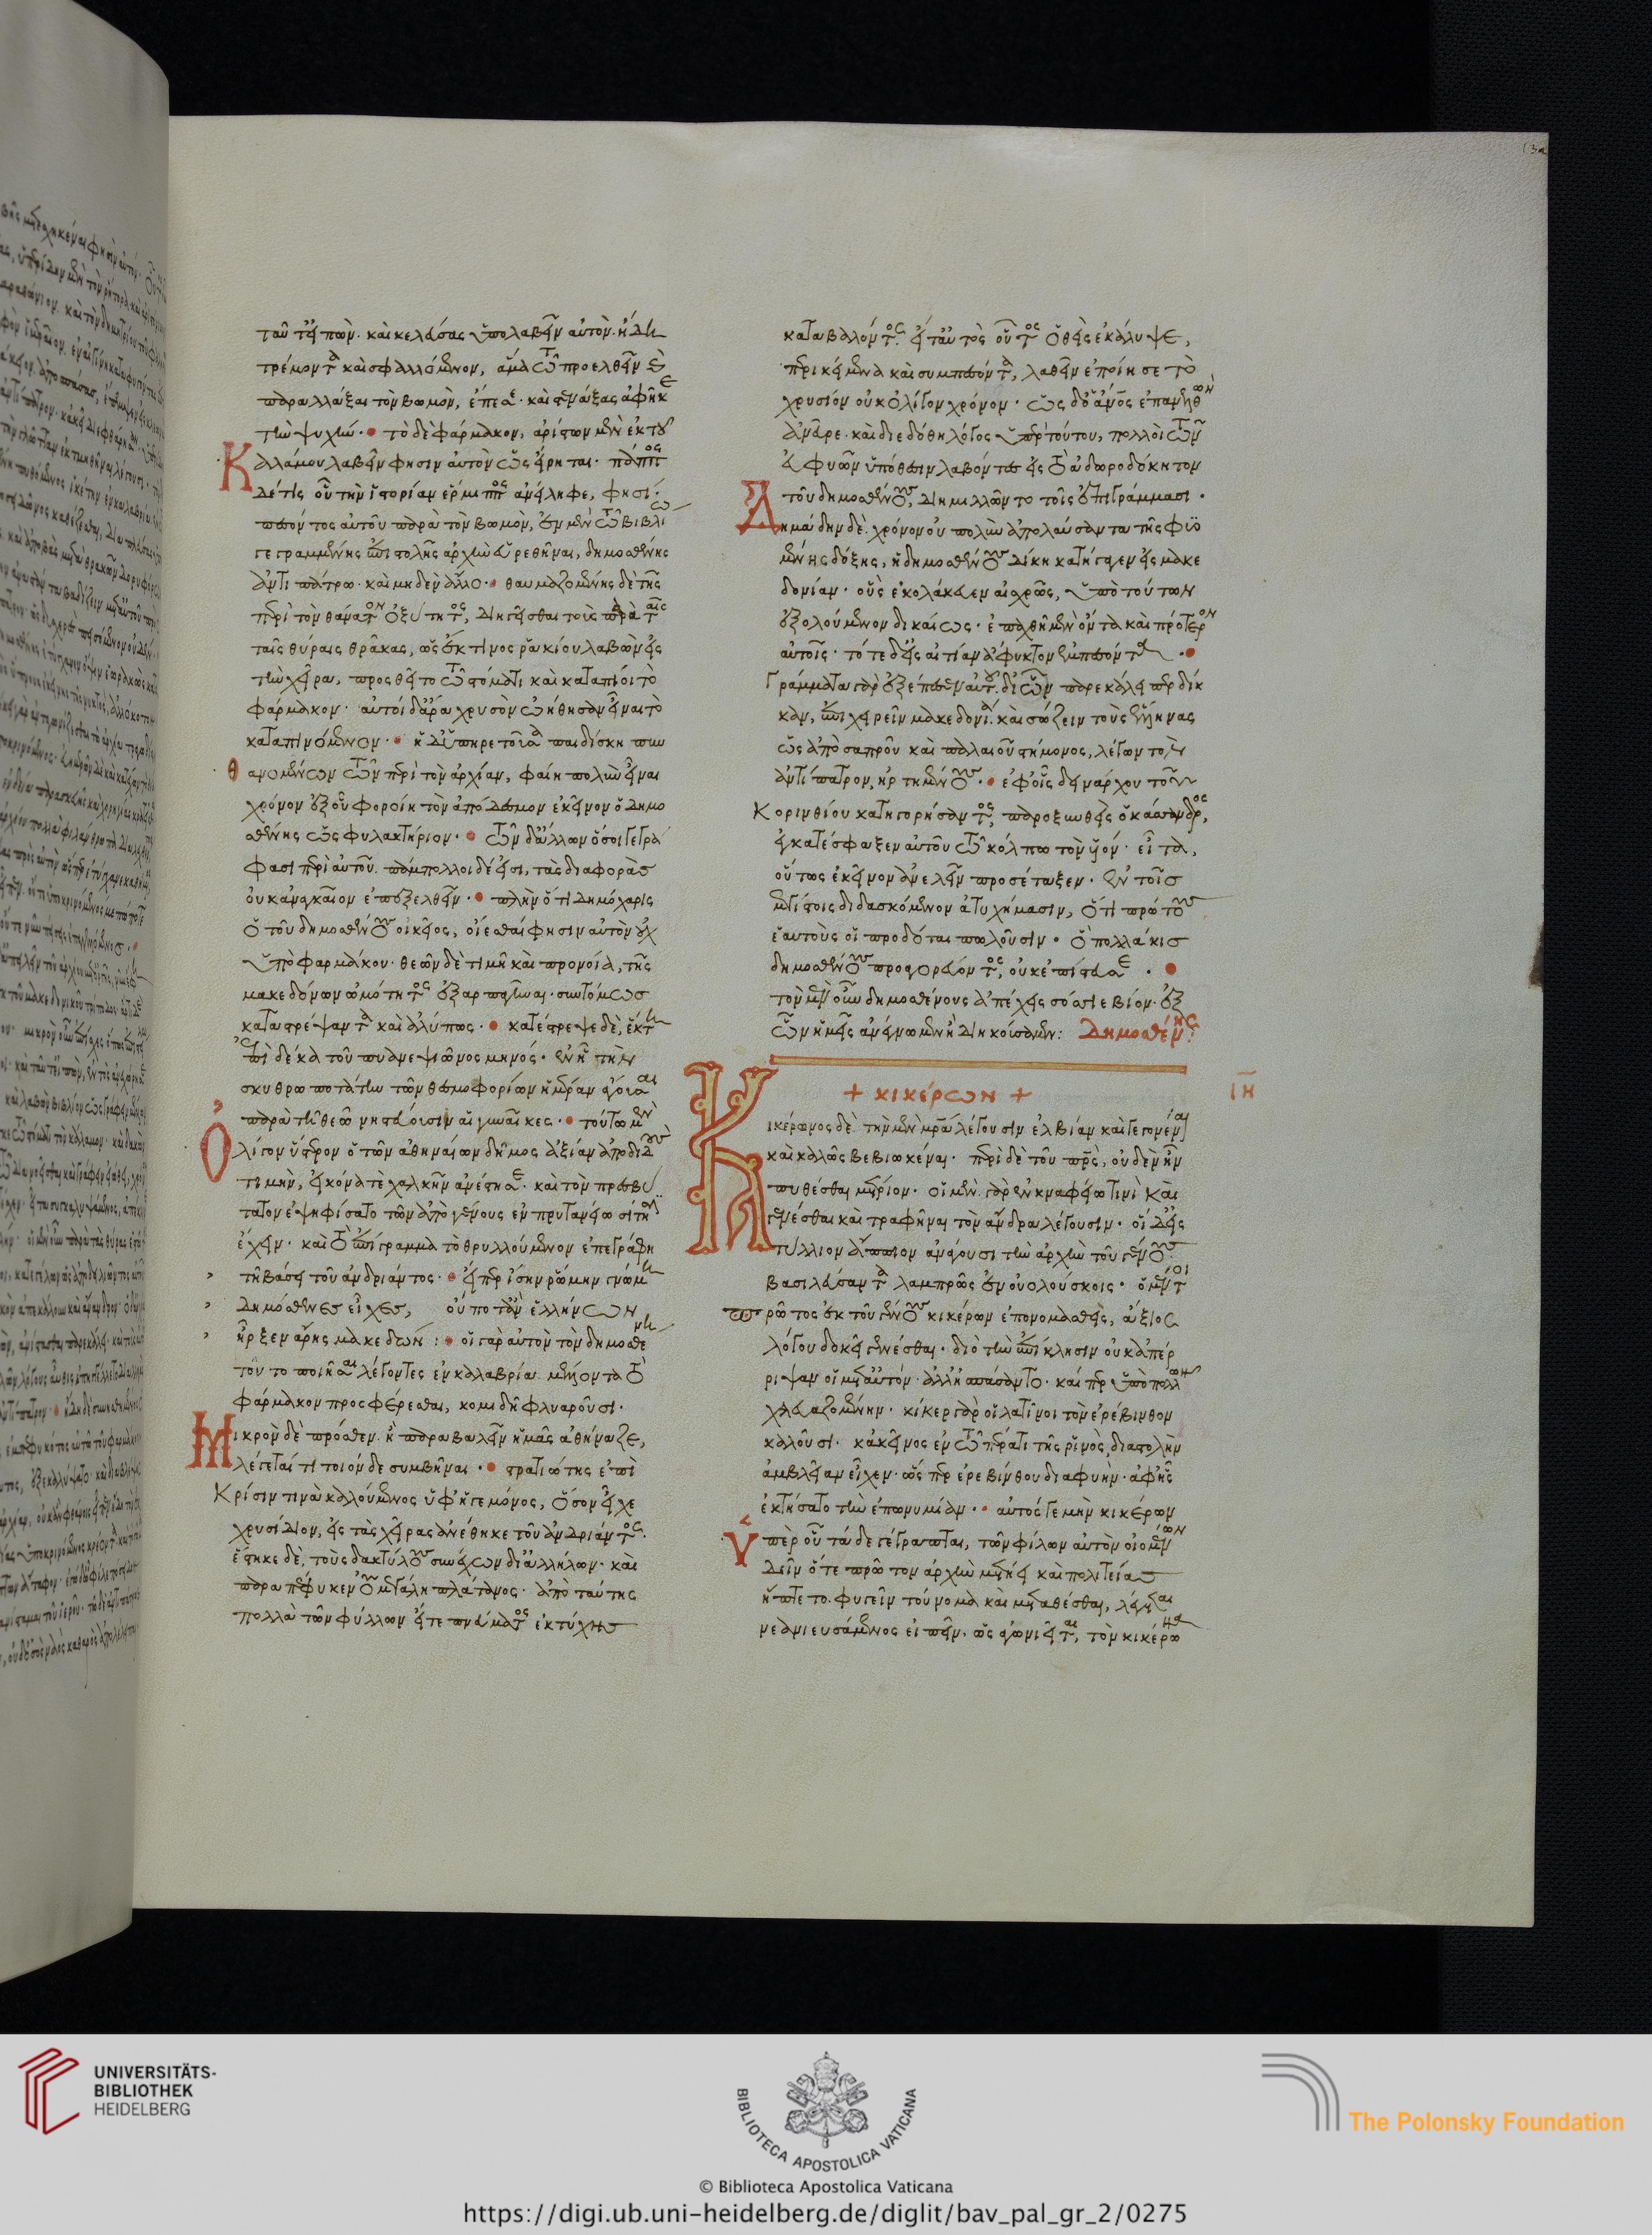 ταῦτ' εἰπὼν· καὶ κελεύσας ὑπολαβεῖν αὐτὸν· ἤδη
τρέμοντα καὶ σφαλλόμενον, ἅμα τῷ προελθεῖν καὶ
παραλλάξαι τὸν βωμὸν, ἔπεσε· καὶ στενάξας ἀφῆκε
τὴν ψυχήν· τὸ δὲ φάρμακον, ἀρίστων μὲν ἐκ τοῦ
Καλάμου λαβεῖν φησιν αὐτὸν ὡς εἴρηται· πάππος
δέ τις οὗ τὴν ἱστορίαν ἕρμιππος ἀνείληφε, φησί·
πεσόντος αὐτοῦ παρὰ τὸν βωμὸν, ἐν μὲν τῷ βιβλίῳ
γεγραμμένης ἐπιστολῆς ἀρχὴν εὑρεθῆναι, δημοσθένης
ἀντιπάτρω· καὶ μηδὲν ἄλλο· θαυμαζομένης δὲ τῆς
περὶ τὸν θάνατον ὀξύτητος, διηγεῖσθαι τοὺς παρὰ ταῖς
ταῖς θύραις θρᾶκας, ὡς ἔκ τινος ῥακίου λαβὼν εἰς
τὴν χεῖρα, προσθεῖτο τῷ στόματι καὶ καταπίοι τὸ
φάρμακον· αὐτοὶ δ' ἄρα χρυσὸν ὠήθησαν εἶναι τὸ
καταπινόμενον· ἡ δ' ὑπηρετοῦσα παιδίσκη πυν
θανομένων τῶν περὶ τὸν ἀρχίαν, φαίη πολὺν εἶναι
χρόνον ἐξ οὗ φοροίη τὸν ἀπόδεσμον ἐκεῖνον ὁ δημο
σθένης ὡς φυλακτήριον· τῶν δ' ἄλλων ὅσοι γεγρά
φασι περὶ αὐτοῦ· πάμπολλοι δέ εἰσι, τὰς διαφορὰς
οὐκ ἀναγκαῖον ἐπεξελθεῖν· πλὴν ὅτι δημόχαρις
ὁ τοῦ δημοσθένους οἰκεῖος, οἴεσθαί φησιν αὐτὸν οὐχ
ὑπὸ φαρμάκου· θεῶν δὲ τιμῆ καὶ προνοία, τῆς
μακεδόνων ὠμότητος ἐξαρπαγῆναι· συντόμως
καταστρέψαντα καὶ ἀλύπως· κατέστρεψε δὲ, ἕκτη
ἐπὶ δέκα τοῦ πυανεψιῶνος μηνός· ἐν ἧ τὴν
σκυθρωποτάτην τῶν θεσμοφορίων ἡμέραν ἄγουσαι
παρὰ τῆ θεῶ νηστεύουσιν αἱ γυναῖκες· τούτω μὲν
Ὀλίγον ὕστερον ὁ τῶν ἀθηναίων δῆμος ἀξίαν ἀποδιδοὺς
τιμὴν, εἰκόνα τὲ χαλκῆν ἀνέστησε· καὶ τὸν πρεσβύ
τατον ἐψηφίσατο τῶν ἀπὸ γένους ἐν πρυτανείω σίτησιν
ἔχειν· καὶ τὸ ἐπίγραμμα τὸ θρυλλούμενον ἐπεγράφη
τῆ βάσει τοῦ ἀνδριάντος· εἴπερ ἴσην ῥώμην γνώμη
δημόσθενες εἶχες, οὔποτ' ἂν ἑλλήνων
ἦρξεν ἄρης μακεδών: οἱ γὰρ αὐτὸν τὸν δημοσθένη
τοῦτο ποιῆσαι λέγοντες ἐν καλαβρία· μέλλοντα τὸ
φάρμακον προσφέρεσθαι, κομιδῆ φλυαροῦσι·
Μικρὸν δὲ πρόσθεν· ἢ παραβαλεῖν ἡμᾶς ἀθήναζε,
λέγεταί τι τοιόνδε συμβῆναι· στρατιώτης ἐπὶ
Κρίσιν τινὰ καλούμενος ὑφ' ἡγεμόνος, ὅσον εἶχε
χρυσίδιον, εἰς τὰς χεῖρας ἀνέθηκε τοῦ ἀνδριάντος·
ἕστηκε δὲ, τοὺς δακτύλους συνέχων δι' ἀλλήλων· καὶ
παραπέφυκεν οὐ μεγάλη πλάτανος· ἀπὸ ταύτης
πολλὰ τῶν φύλλων εἴτε πνεύματος ἐκ τύχης
καταβαλόντος· εἴτ' αὐτὸς οὗτος ὁ θεὶς ἐκάλυψε,
περικείμενα καὶ συμπεσόντα, λαθεῖν ἐποίησε τὸ
χρυσίον οὐκ ὀλίγον χρόνον· ὡς δ' ὁ ἄνθρωπος ἐπανελθὼν
ἀνεῦρε· καὶ διεδόθη λόγος ὑπὲρ τούτου, πολλοὶ τῶν
εὐφυῶν ὑπόθεσιν λαβόντες εἰς τὸ ἀδωροδόκητον
τοῦ δημοσθένους, διημιλλῶντο τοῖς ἐπιγράμμασι·
Δημάδην δὲ χρόνον οὐ πολὺν ἀπολαύσαντα τῆς φυο
μένης δόξης, ἡ δημοσθένους δίκη κατήγαγεν εἰς μακε
δονίαν· οὓς ἐκολάκευεν αἰσχρῶς, ὑπὸ τούτων
ἐξολούμενον δικαίως· ἐπαχθῆ μὲν ὄντα καὶ πρότερον
αὐτοῖς· τότε δ' εἰς αἰτίαν ἄφυκτον ἐμπεσόντα·
Γράμματα γὰρ ἐξέπεσεν αὐτοῦ· δι' ὧν παρεκάλει περδίκ
καν, ἐπιχειρεῖν μακεδονία· καὶ σώζειν τοὺς ἕλληνας
ὡς ἀπὸ σαπροῦ καὶ παλαιοῦ στήμονος, λέγων τὸν
ἀντίπατρον, ἠρτημένους· ἐφ' οἷς δεινάρχου τοῦ
Κορινθίου κατηγορήσαντος, παροξυνθεὶς ὁ κάσανδρος,
ἐγκατέσφαξεν αὐτοῦ τῷ κόλπω τὸν υἱόν· εἶτα,
οὕτως ἐκεῖνον ἀνελεῖν προσέταξεν· ἐν τοῖς
μεγίστοις διδασκόμενον ἀτυχήμασιν, ὅτι πρώτους
ἑαυτοὺς οἱ προδόται πωλοῦσιν· ὃ πολλάκις
δημοσθένους προαγορεύοντος, οὐκ ἐπίστευσε·
τὸν μὲν οὖν δημοσθένους ἀπέχεις σόσσιε βίον· ἐξ
ὧν ἡμεῖς ἀνέγνωμεν ἢ διηκούσαμεν: Δημοσθένης:
+ ΚΙΚΕΡΩΝ +
ΙΗ
Κικέρωνος δὲ τὴν μὲν μητέρα λέγουσιν ἐλβίαν καὶ γεγονέναι
καὶ καλῶς βεβιωκέναι· περὶ δὲ τοῦ πατρὸς, οὐδὲν ἦν
πυθέσθαι μέτριον· οἱ μὲν γὰρ ἐν κναφείω τινὶ καὶ
γενέσθαι καὶ τραφῆναι τὸν ἄνδρα λέγουσιν· οἱ δ' εἰς
τύλλιον ἄππιον ἀνάγουσι τὴν ἀρχὴν τοῦ γένους
βασιλεύσαντα λαμπρῶς ἐν οὐολούσκοις· ὁ μέντοι
πρῶτος ἐκ τοῦ γένους κικέρων ἐπονομασθεὶς, ἄξιος
λόγου δοκεῖ γενέσθαι· διὸ τὴν ἐπίκλησιν οὐκ ἀπέρ
ριψαν οἱ μετ' αὐτόν· ἀλλ' ἠσπάσαντο· καίπερ ὑπὸ πολλῶν
χλευαζομένην· κίκερ γὰρ οἱ λατῖνοι τὸν ἐρέβινθον
καλοῦσι· κἀκεῖνος ἐν τῷ πέρατι τῆς ῥινὸς, διαστολὴν
ἀμβλεῖαν εἶχεν· ὥσπερ ἐρεβίνθου διαφυὴν· ἀφ' ἧς
ἐκτήσατο τὴν ἐπωνυμίαν· αὐτός γε μὴν κικέρων
Ὑπὲρ οὗ τάδε γέγραπται, τῶν φίλων αὐτὸν οἰομένων
δεῖν ὅτε πρῶτον ἀρχὴν μετήει καὶ πολιτείας
ἥπτετο· φυγεῖν τοὔνομα καὶ μεταθέσθαι, λέγεται
νεανιευσάμενος εἰπεῖν· ὡς ἀγωνιεῖται, τὸν κικέρωνα
UNIVERSITÄTS-
BIBLIOTHEK
HEIDELBERG
BIBLIOTECA APOSTOLICA VATICANA
© Biblioteca Apostolica Vaticana
The Polonsky Foundation
https://digi.ub.uni-heidelberg.de/diglit/bav_pal_gr_2/0275